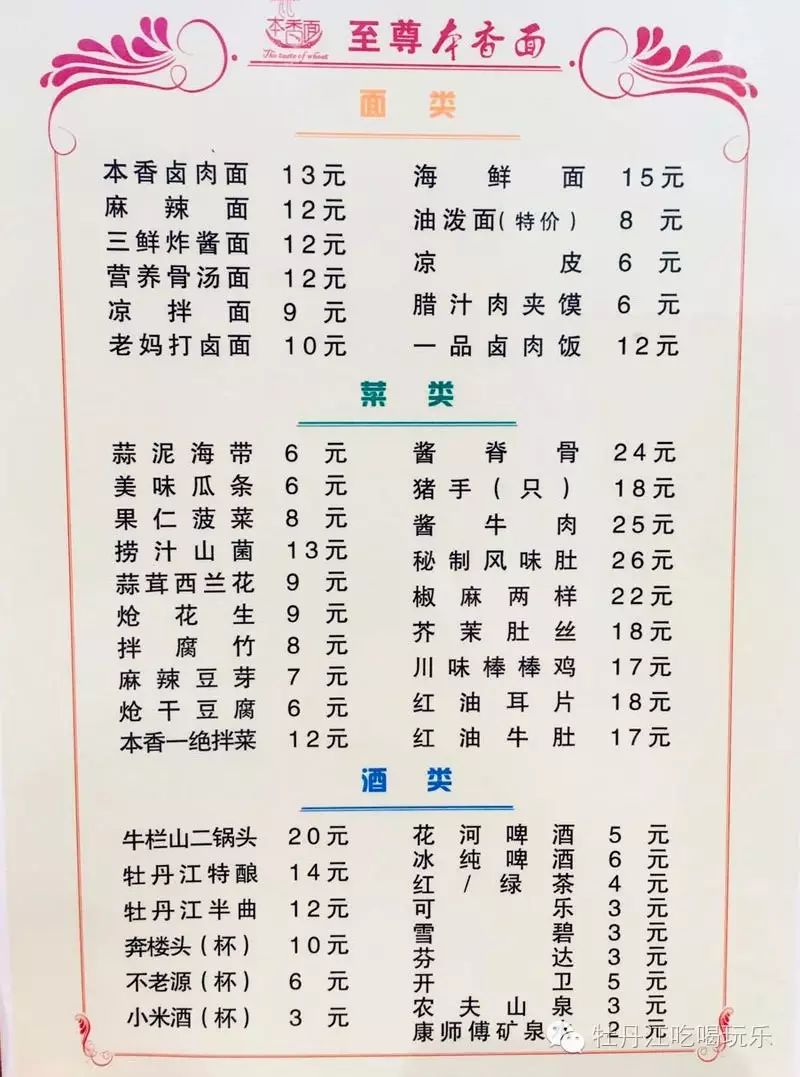 本香面
The taste of wheat
至尊本香面
面类
本香卤肉面 13元
麻辣面 12元
三鲜炸酱面 12元
营养骨汤面 12元
凉拌面 9元
老妈打卤面 10元
海鲜面 15元
油泼面(特价) 8元
凉皮 6元
腊汁肉夹馍 6元
一品卤肉饭 12元
菜类
蒜泥海带 6元
美味瓜条 6元
果仁菠菜 8元
捞汁山菌 13元
蒜茸西兰花 9元
炝花生 9元
拌腐竹 8元
麻辣豆芽 7元
炝干豆腐 6元
本香一绝拌菜 12元
酱脊骨 24元
猪手(只) 18元
酱牛肉 25元
秘制风味肚 26元
椒麻两样 22元
芥茉肚丝 18元
川味棒棒鸡 17元
红油耳片 18元
红油牛肚 17元
酒类
牛栏山二锅头 20元
牡丹江特酿 14元
牡丹江半曲 12元
奔楼头(杯) 10元
不老源(杯) 6元
小米酒(杯) 3元
花河啤酒 5元
冰纯啤酒 6元
红/绿茶 4元
可乐 3元
雪碧 3元
芬达 3元
开卫 5元
农夫山泉 3元
康师傅矿泉水 2元
牡丹江吃喝玩乐